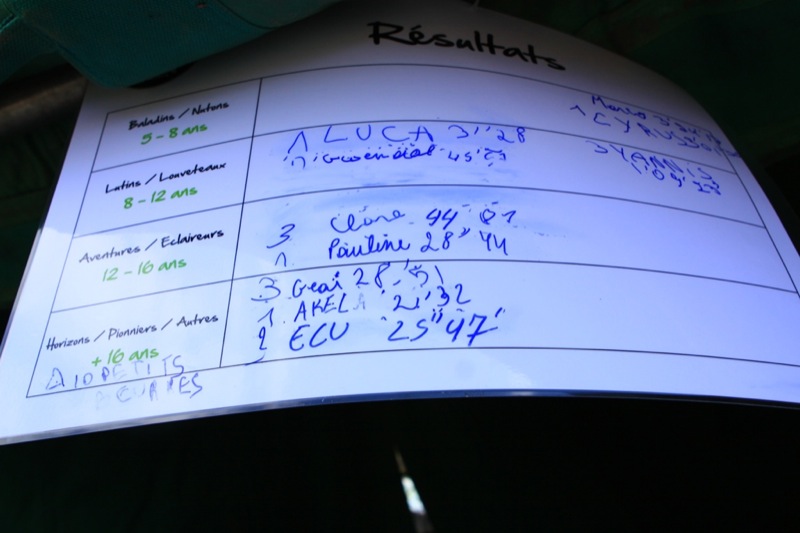 Résultats
Baladins / Nutons
5 - 8 ans
Lutins / Louveteaux
8 - 12 ans
1 LUCA 3''28
1 CYRUS
3 YANNIS
1'09'28
Aventures / Eclaireurs
12 - 16 ans
3 Clara 44' 01
1 Pauline 28'' 44
Horizons / Pionniers / Autres
+ 16 ans
3 Geai 28'51
1 AKELA 21'32
2 ECU 25''47'